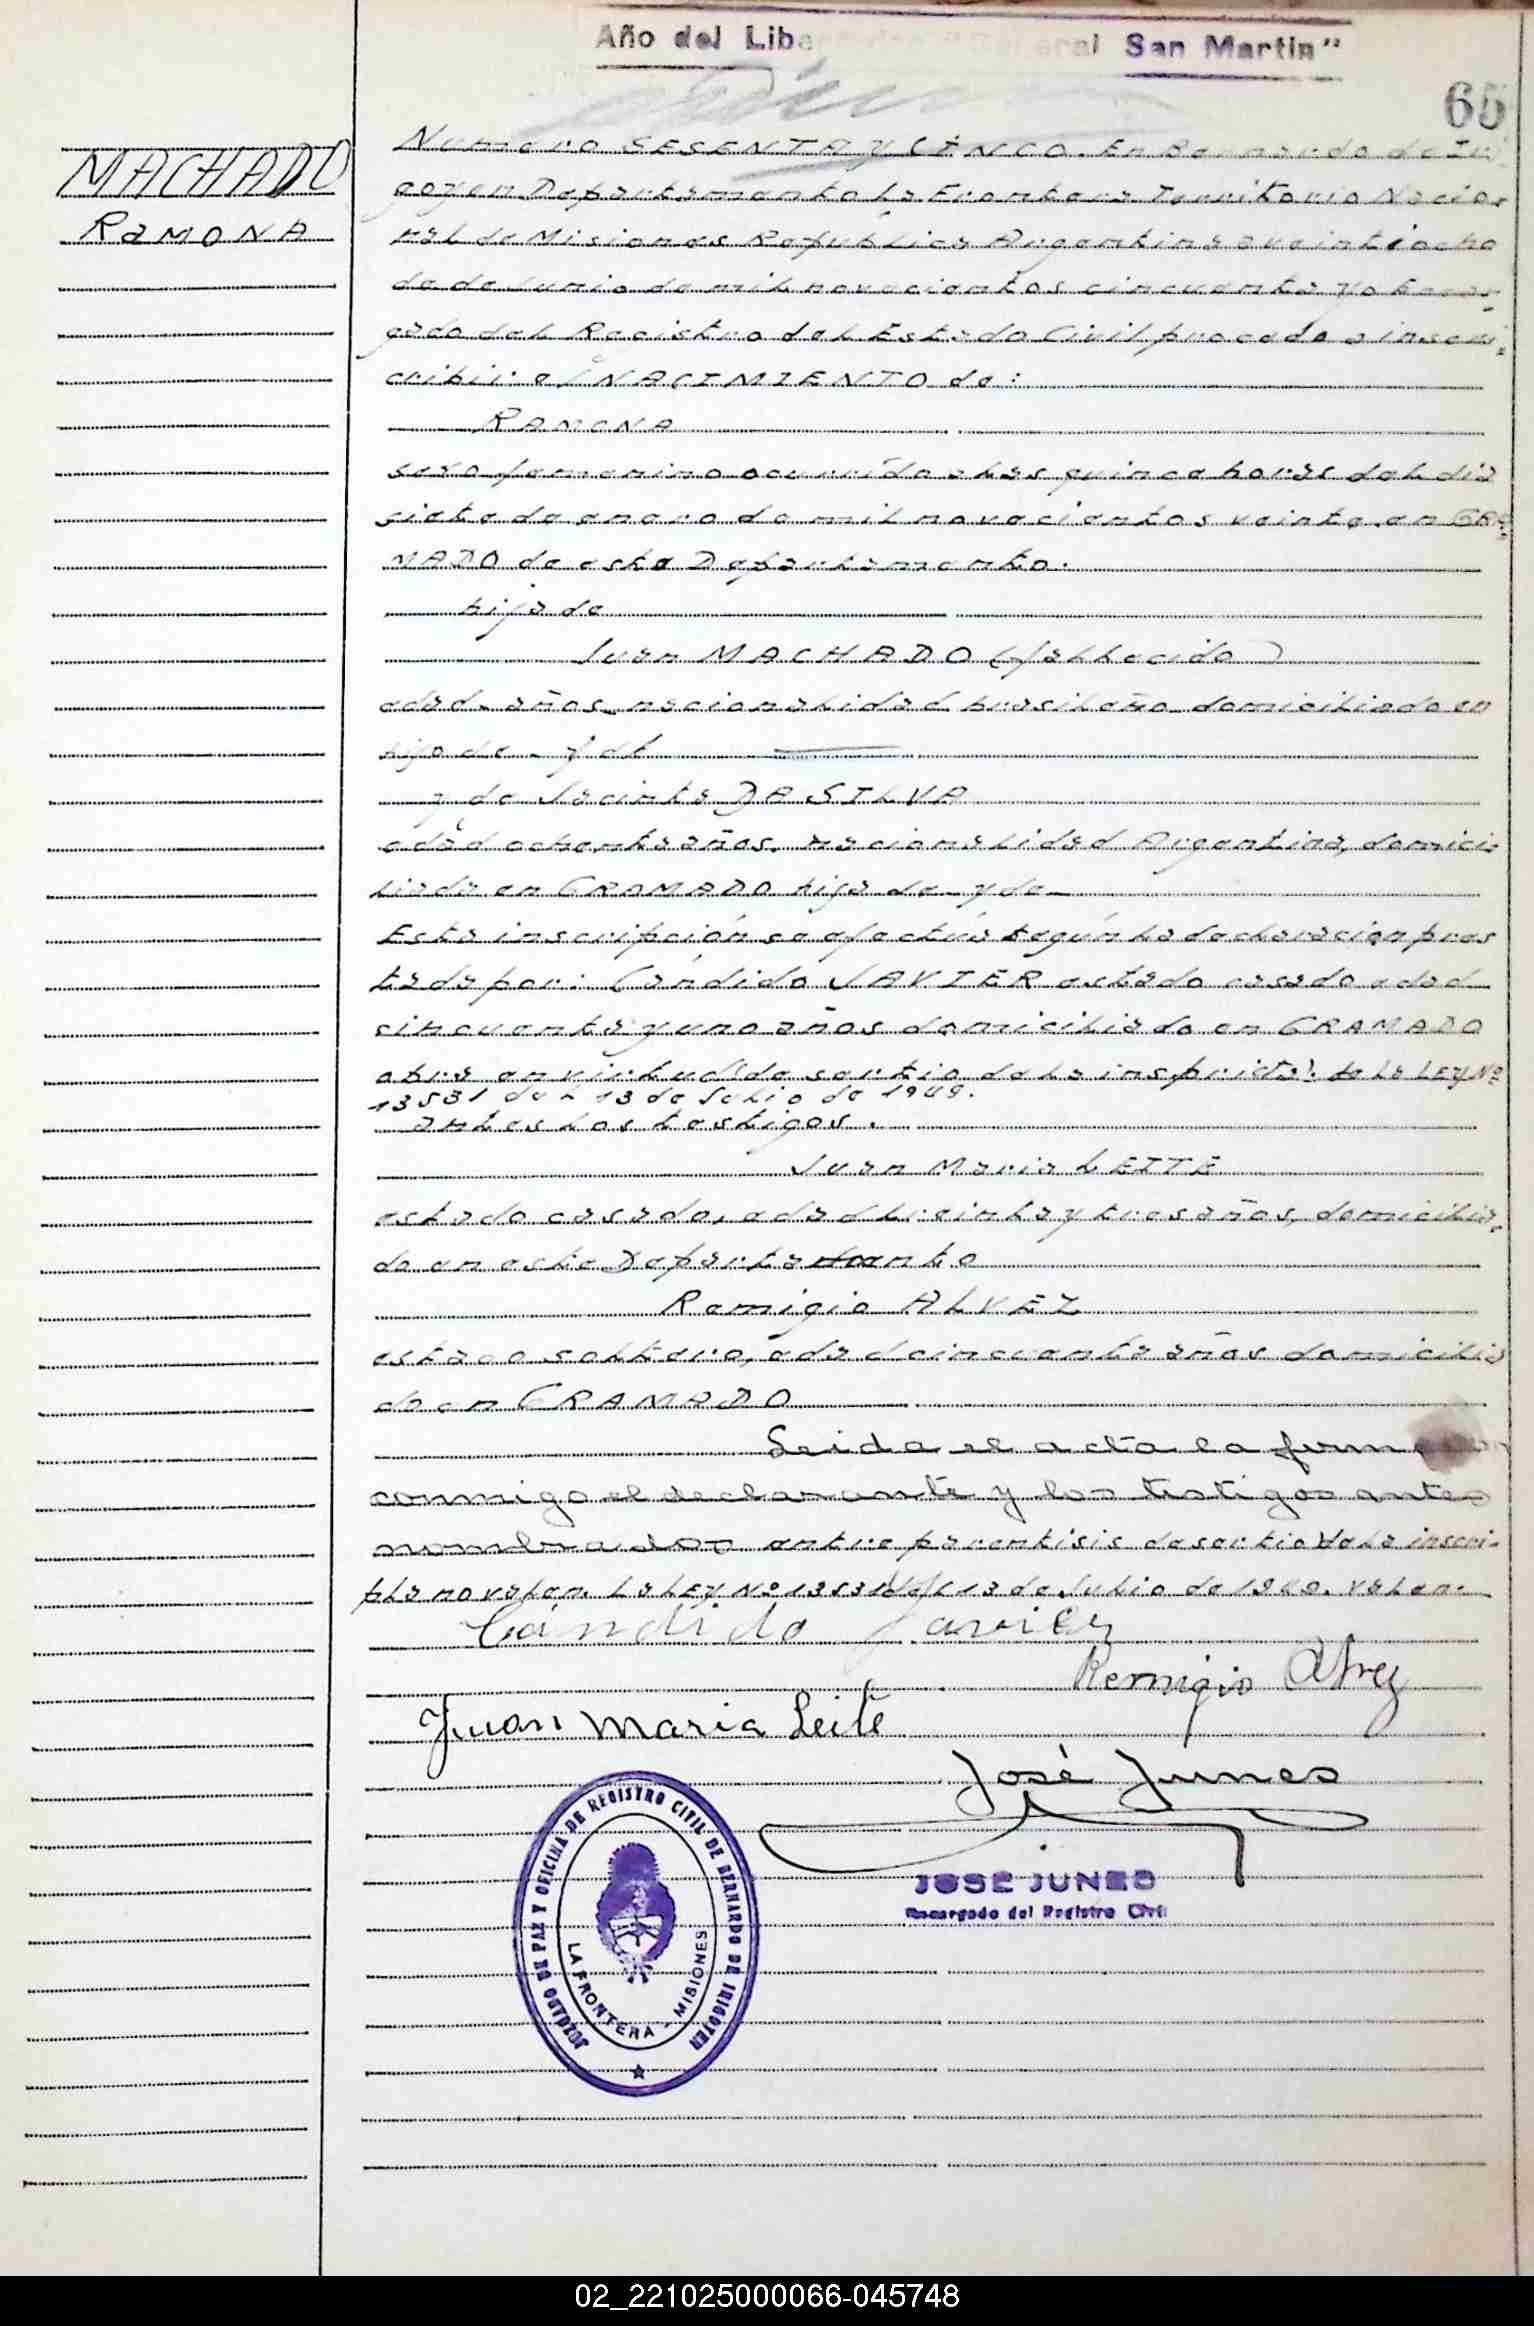 Año del Libe eral San Martin"
65
MACHADO
RAMONA
Numero SESENTA y CINCO. En Bernardo de Iri-
goyen Departamento la Frontera Territorio Nacio-
nal de Misiones Republica Argentina a veintiocho
de de Junio de mil novecientos cincuenta yo Encar-
gado del Registro del Estado Civil procedo a inscri-
cribir el NACIMIENTO de:
RAMONA
sexo femenino ocurrido a las quince horas del dia
siete de enero de mil novecientos veinte, en GRA-
MADO de este Departamento.
hija de
Juan MACHADO (fallecido)
edad - años - nacionalidad brasileño domiciliado en
hijo de - y de
y de Jacinta DA SILVA
edad ochenta años, nacionalidad Argentina, domici-
liada en GRAMADO hija de - y de -
Esta inscripción se efectúa según la declaración pres
tada por: Cándido JAVIER estado casado edad
cincuenta y uno años domiciliado en GRAMADO
obra en virtud (de sertio de la inscripta). de la LEY Nº
13531 del 13 de Julio de 1949.
antes los testigos.
Juan Maria LEITE
estado casado, edad treinta y tres años, domicilia-
do en este Departamento
Remigio ALVEZ
estado soltero, edad cincuenta años domicilia
do en GRAMADO
Leida el acta la firman
conmigo el declarante y los testigos antes
nombrados entre parentisis de sertio de la inscri-
pta no valen. La LEY Nº 13531 del 13 de Julio de 1949. Valen.
Cándido Javier
Remigio Alvez
Juan Maria Leite
José Junes
JOSE JUNES
Encargado del Registro Civil
JUZGADO DE PAZ Y OFICINA DE REGISTRO CIVIL DE BERNARDO DE IRIGOYEN
LA FRONTERA - MISIONES
02_221025000066-045748